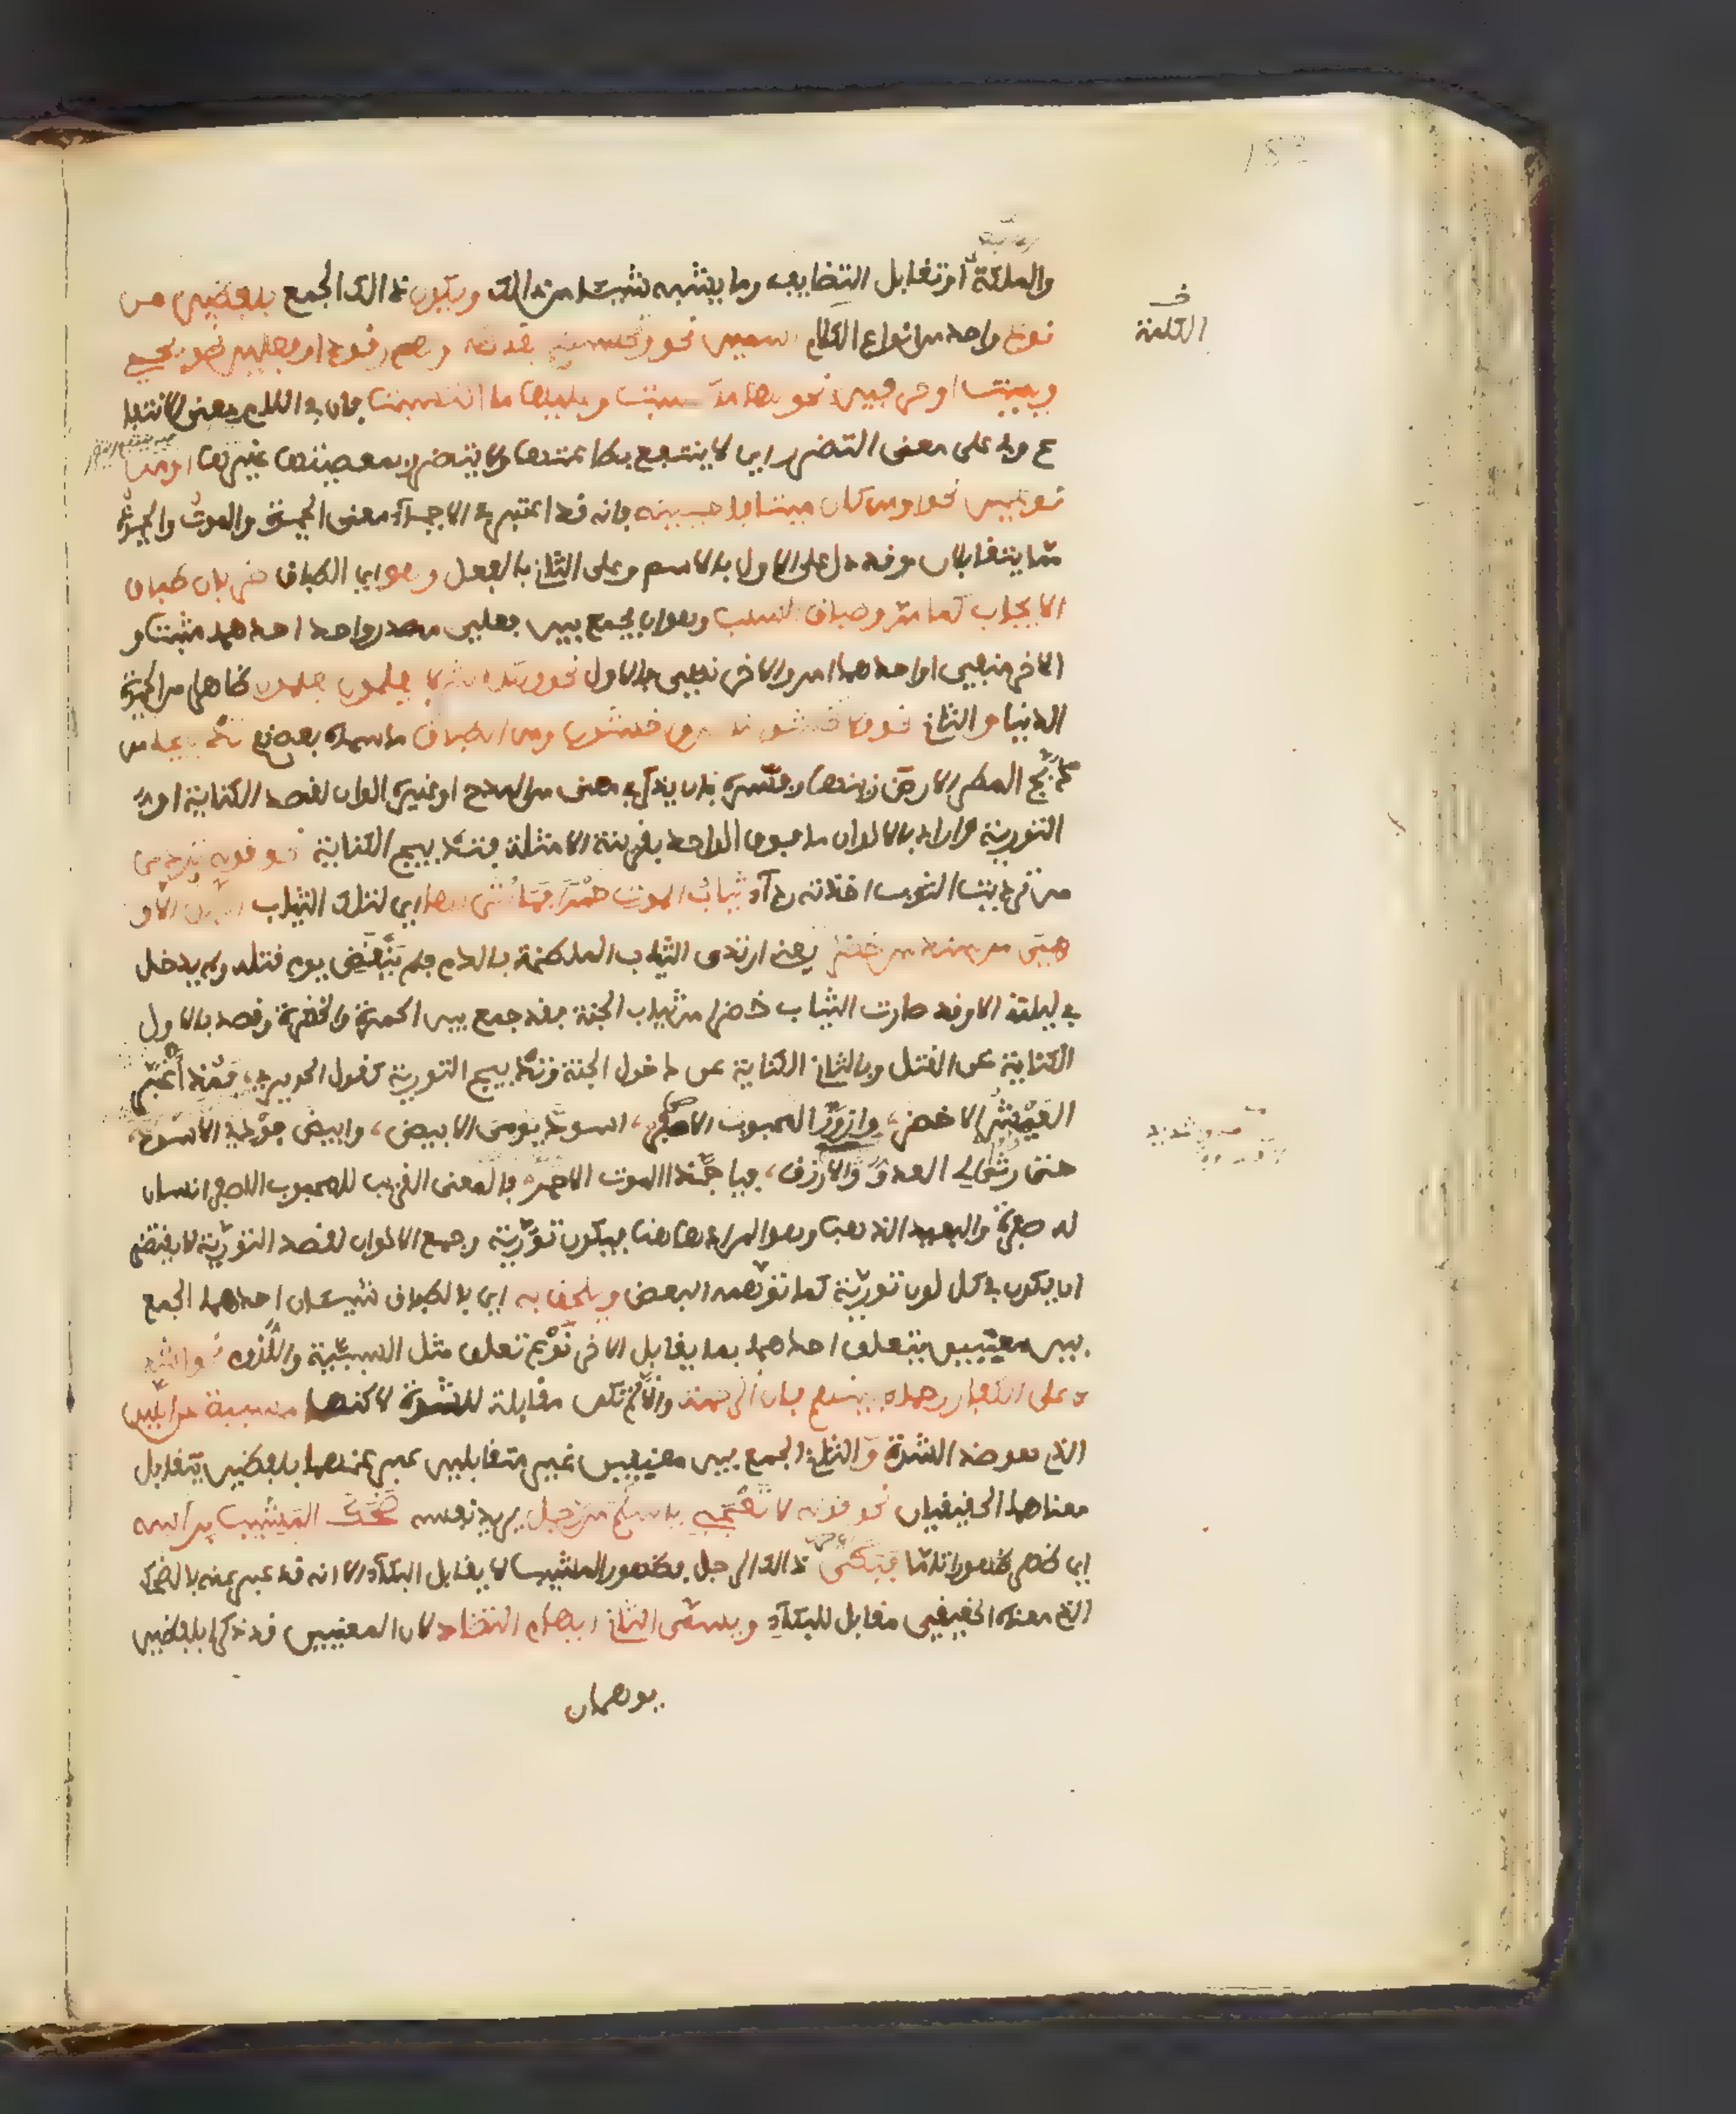 والملكة او تقابل التضايف وما يشبه شيئا من ذالك ويكون ذالك الجمع بلفظين من
نوع واحد من انواع الكلام اسمين نحو وتحسبهم ايقاظا وهم رقود او فعلين نحو يحيي
ويميت او حرفين نحو لها ما كسبت وعليها ما اكتسبت فان في اللام معنى الانتفا
ع وفي على معنى التضرر اي لا ينتفع بطاعتها ولا يتضرر بمعصيتها غيرها او من
نوعين نحو اومن كان ميتا فاحييناه فانه قد اعتبر في الاحيآء معنى الحيوة والموت والحيوة
مما يتقابلان وقد دل على الاول بالاسم وعلى الثاني بالفعل وهو اي الطباق ضربان طباق
الايجاب كما مر وطباق السلب وهو ان يجمع بين فعلي مصدر واحد احدهما مثبت و
الاخر منفي او احدهما امر والاخر نهي فالاول نحو ولكن اكثر الناس لا يعلمون يعلمون ظاهرا من الحيوة
الدنيا والثاني نحو فلا تخشوا الناس واخشون ومن الطباق ما سماه بعضهم تدبيجا من
دبج المطر الارض زينها وفسره بان يذكر في معنى من المدح او غيره الوان لقصد الكناية او
التورية واراد بالالوان ما فوق الواحد بقرينة الامثلة فتدبيج الكناية نحو قوله تردى من
تردیت الثوب اخذته ردآء ثياب الموت حمرا فما اتى لها اي لتلك الثياب الليل الا و
هي من سندس خضر يعني ارتدى الثياب الملطخة بالدم فلم ينقض يوم قتله ولم يدخل
في ليلته الا وقد صارت الثياب خضرا من ثياب الجنة فقد جمع بين الحمرة والخضرة وقصد بالاول
الكناية عن القتل وبالثاني الكناية عن دخول الجنة وتدبيج التورية كقول الحريري، فمذ اغبر
العيش الاخضر، وازور المحبوب الاصفر، اسود يومي الابيض، وابيض فودي الاسود،
حتى رثى لي العدو الازرق، فيا حبذا الموت الاحمر، فالمعنى القريب للمحبوب الاصفر انسان
له صفرة والبعيد الذهب وهو المراد هاهنا فيكون تورية وجمع الالوان لقصد التورية لا يقتضي
ان يكون في كل لون تورية كما توهمه البعض ويلحق به اي بالطباق شيئان احدهما الجمع
بين معنيين يتعلق احدهما بما يقابل الاخر نوع تعلق مثل السببية واللزوم نحو اشد
آء على الكفار رحمآء بينهم فان الرحمة وان لم تكن مقابلة للشدة لاكنها مسببة عن اللين
الذي هو ضد الشدة والثاني الجمع بين معنيين غير متقابلين عبر عنهما بلفظين يتقابل
معناهما الحقيقيان نحو قوله لا تعجبي يا سلم من رجل يريد نفسه ضحك المشيب براسه
اي ظهر ظهورا تاما فبكى ذالك الرجل فظهور المشيب لا يقابل البكآء الا انه قد عبر عنه بالضحك
الذي معناه الحقيقي مقابل للبكآء ويسمى الثاني ايهام التضاد لان المعنيين قد ذكرا بلفظين
يوهمان
الكلمة